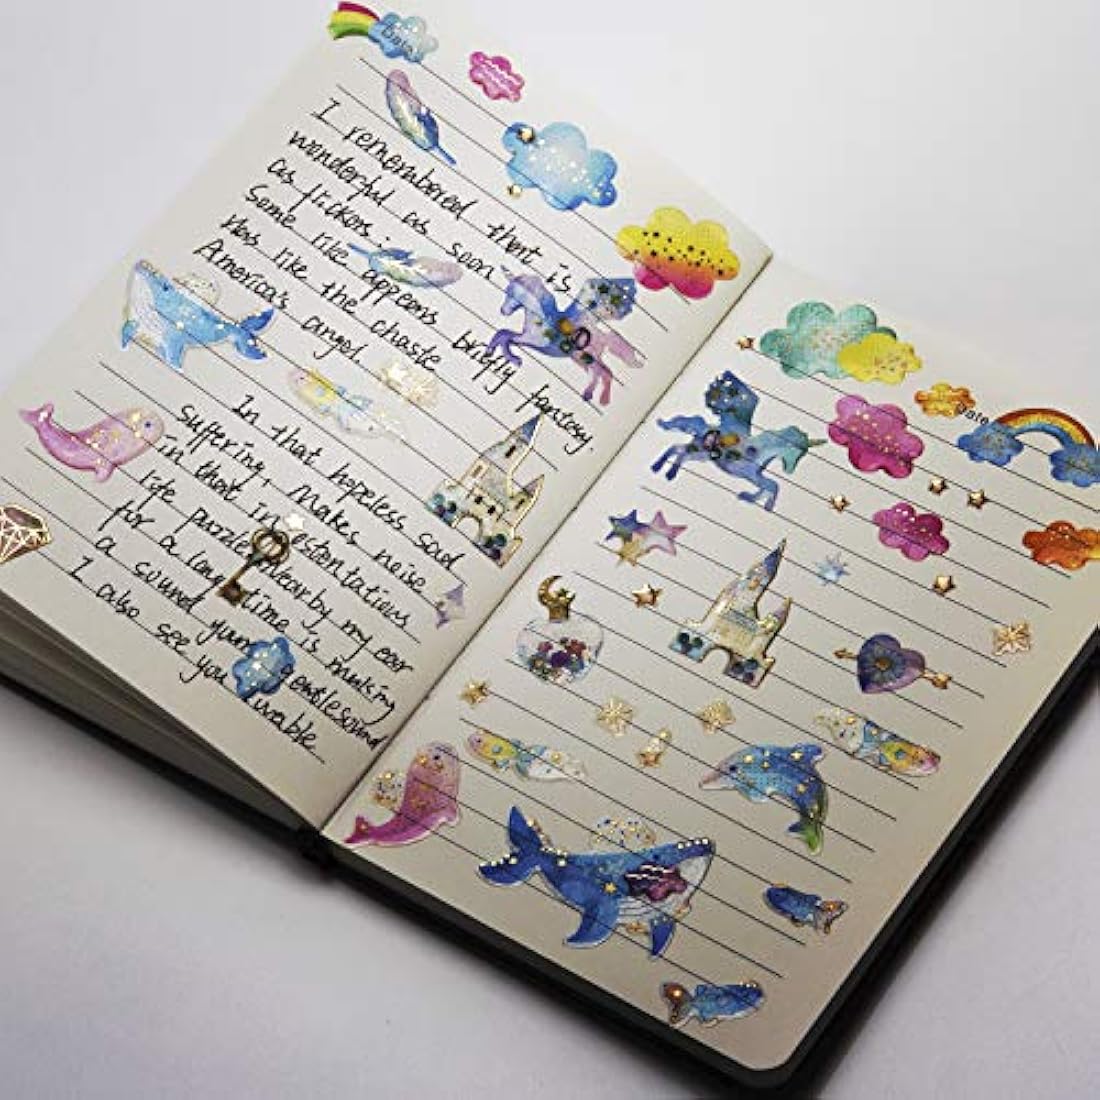 Date
I remembered that is
wonderful as soon
as flickers.
Some like appears briefly fantasy.
Has like the chaste
America's angel.
In that hopeless said
suffering, Makes noise
in that in estentations
life puzzle nearby my ear
for a long time is making
a sound yum gentlesound
I also see you urable.
Date